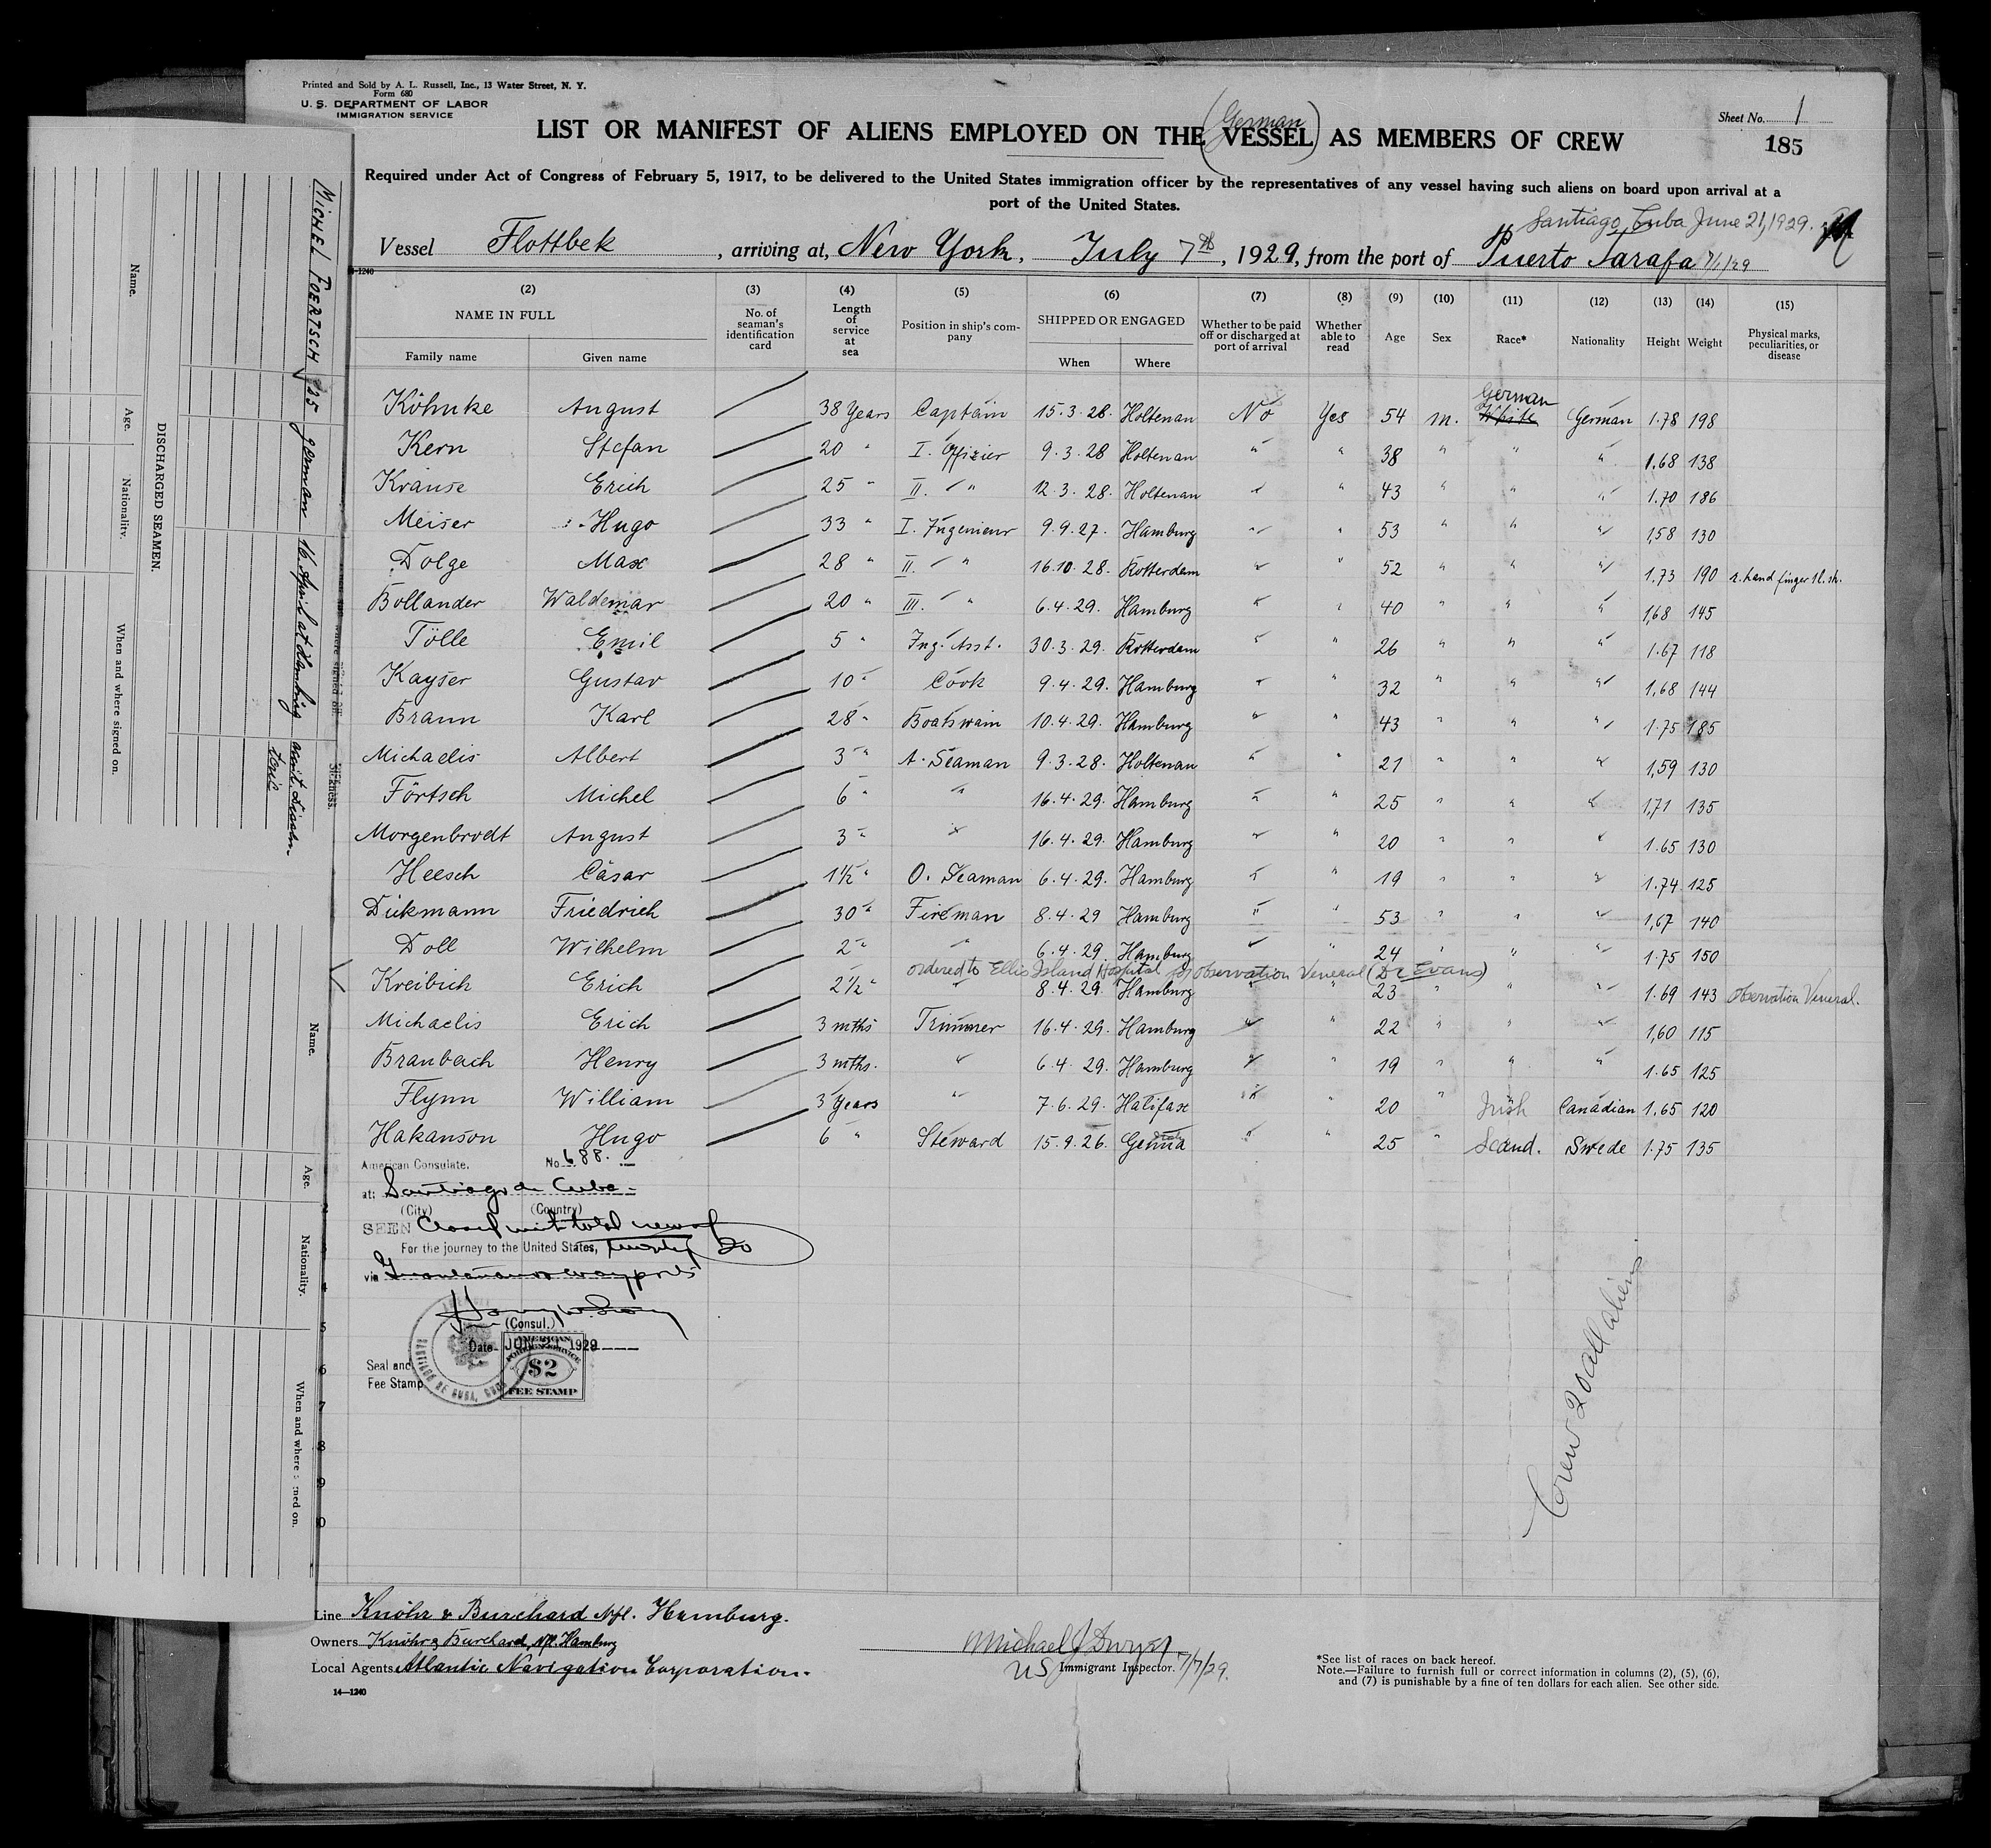 Printed and Sold by A. L. Russell, Inc., 13 Water Street, N. Y.
Form 680
U. S. DEPARTMENT OF LABOR
IMMIGRATION SERVICE
Sheet No. 1
185
(German)
LIST OR MANIFEST OF ALIENS EMPLOYED ON THE VESSEL AS MEMBERS OF CREW
Required under Act of Congress of February 5, 1917, to be delivered to the United States immigration officer by the representatives of any vessel having such aliens on board upon arrival at a
port of the United States.
Santiago Cuba June 21, 1929.
Vessel Flottbek, arriving at, New York, July 7th, 1929, from the port of Puerto Tarafa 7/1/29
14-1240
(2) (3) (4) (5) (6) (7) (8) (9) (10) (11) (12) (13) (14) (15)
NAME IN FULL No. of seaman's identification card Length of service at sea Position in ship's company SHIPPED OR ENGAGED Whether to be paid off or discharged at port of arrival Whether able to read Age Sex Race* Nationality Height Weight Physical marks, peculiarities, or disease
Family name Given name When Where
German
Köhnke August 38 Years Captain 15.3.28. Holtenau No Yes 54 m. White German 1.78 198
Kern Stefan 20 " I. Offizier 9.3.28 Holtenau " " 38 " " " 1.68 138
Krause Erich 25 " II. " 12.3.28. Holtenau " " 43 " " " 1.70 186
Meiser Hugo 33 " I. Ingenieur 9.9.27. Hamburg " " 53 " " " 1,58 130
Dolge Max 28 " II. " 16.10.28. Rotterdam " " 52 " " " 1,73 190 r. hand finger
Bollander Waldemar 20 " III. " 6.4.29. Hamburg " " 40 " " " 1,68 145
Tölle Emil 5 " Ing. Asst. 30.3.29. Rotterdam " " 26 " " " 1.67 118
Kayser Gustav 10 " Cook 9.4.29. Hamburg " " 32 " " " 1,68 144
Braun Karl 28 " Boatswain 10.4.29. Hamburg " " 43 " " " 1.75 185
Michaelis Albert 3 " A. Seaman 9.3.28. Holtenau " " 21 " " " 1,59 130
Förtsch Michel 6 " " 16.4.29. Hamburg " " 25 " " " 1,71 135
Morgenbrodt August 3 " " 16.4.29. Hamburg " " 20 " " " 1.65 130
Heesch Cäsar 1½ " O. Seaman 6.4.29. Hamburg " " 19 " " " 1.74 125
Dickmann Friedrich 30 " Fireman 8.4.29 Hamburg " " 53 " " " 1,67 140
Doll Wilhelm 2 " " 6.4.29. Hamburg " " 24 " " " 1.75 150
ordered to Ellis Island Hospital for observation Veneral (Dr Evans)
Kreibich Erich 2½ " " 8.4.29. Hamburg " " 23 " " " 1.69 143 Observation Veneral.
Michaelis Erich 3 mths Trimmer 16.4.29. Hamburg " " 22 " " " 1,60 115
Braubach Henry 3 mths. " 6.4.29. Hamburg " " 19 " " " 1.65 125
Flynn William 3 Years " 7.6.29. Halifax " " 20 " Irish Canadian 1.65 120
Hakanson Hugo 6 " Steward 15.9.26. Genua " " 25 " Scand. Swede 1.75 135
American Consulate. No. 688.
at: Santiago de Cuba
(City) (Country)
SEEN Closed with total crew of
For the journey to the United States, twenty 20
via Guantanamo wayports
(Consul.)
Date JUN 1929
Seal and
Fee Stamp
AMERICAN
FOREIGN SERVICE
$2
FEE STAMP
SANTIAGO DE CUBA, CUBA
Crew 20 all aliens
Line Knöhr & Burchard Nfl. Hamburg.
Owners Knöhr & Burchard, Nfl. Hamburg
Local Agents Atlantic Navigation Corporation.
14—1240
Michael J Dwyer
US Immigrant Inspector. 7/7/29.
*See list of races on back hereof.
Note.—Failure to furnish full or correct information in columns (2), (5), (6),
and (7) is punishable by a fine of ten dollars for each alien. See other side.
DISCHARGED SEAMEN.
Name. Age. Nationality. When and where signed on.
MICHEL FOERTSCH 25 german 16. April at Hamburg
Sickness.
Name. Age. Nationality. When and where signed on.
4
5
6
7
8
9
10